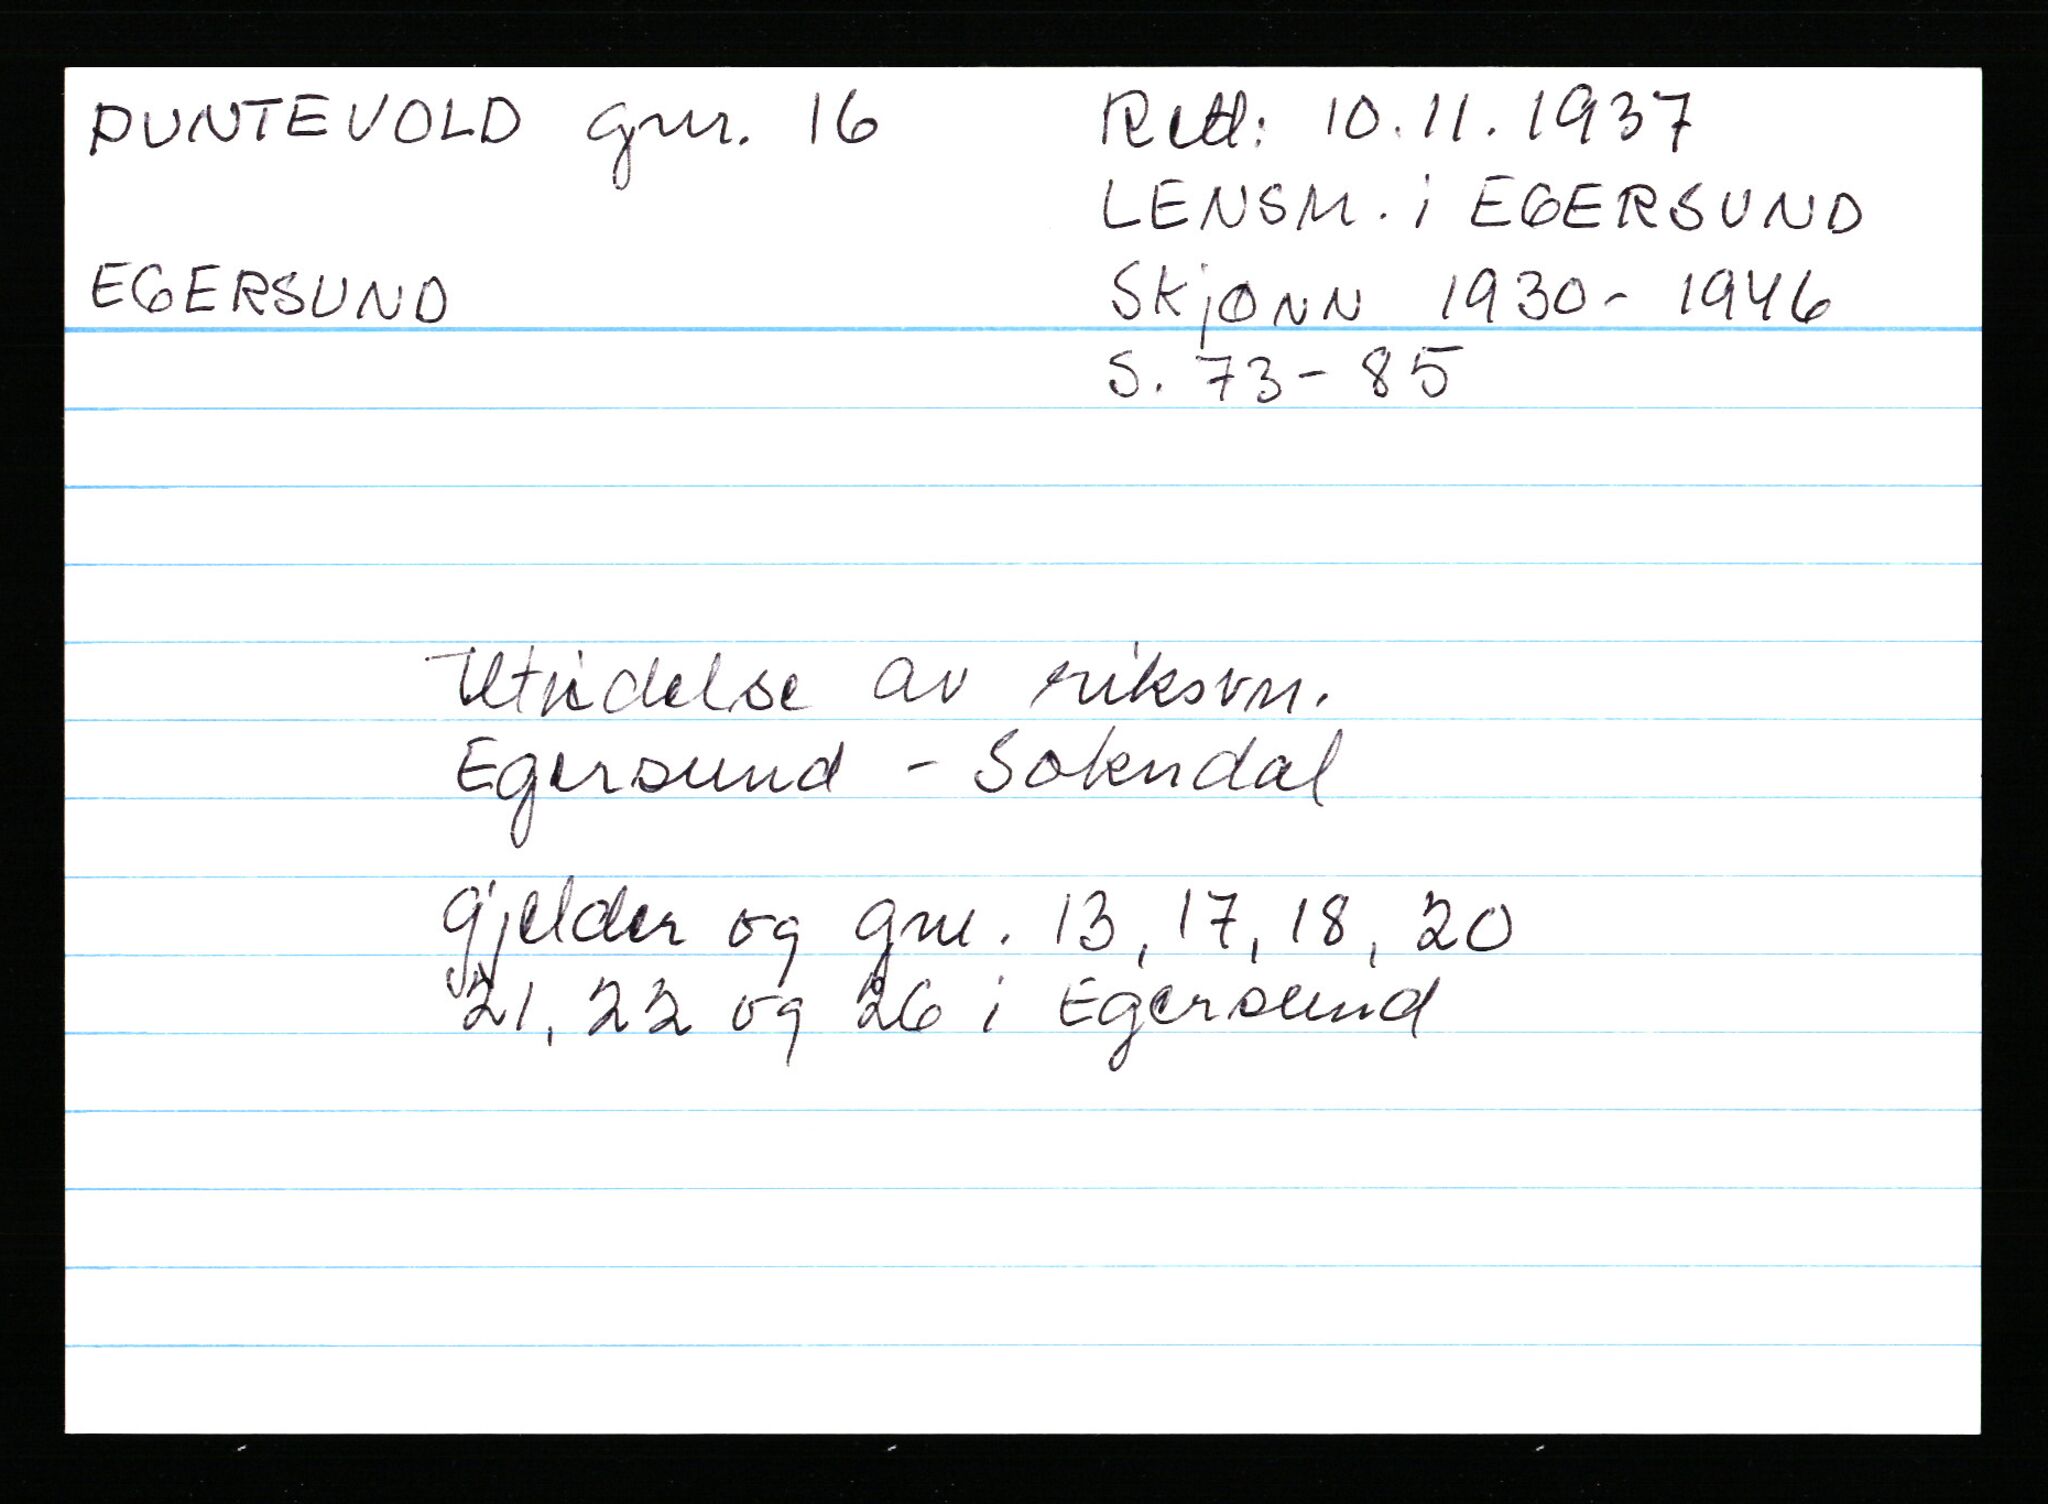 PUNTEVOLD gnr. 16
EGERSUND
Retl: 10.11.1937
LENSM. i EGERSUND
SKjØNN 1930-1946
S. 73-85
Utvidelse av riksvn.
Egersund - Sokndal
Gjelder og gnr. 13, 17, 18, 20
21, 22 og 26 i Egersund